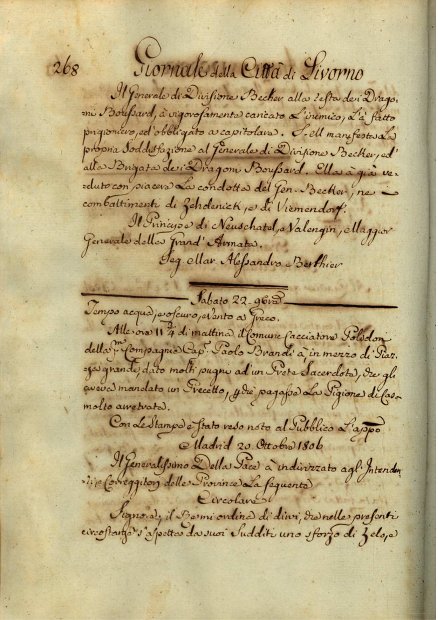 268 Giornale della Città di Livorno
Il Generale di Divisione Becker alla testa dei Drago-
ni Boussard, à vigorosamente caricato l'inimico, l'à fatto
prigioniero, ed obbligato a capitolare. S. ell manifesta la
propria soddisfazione al Generale di Divisione Becker, ed
alla Brigata dei Dragoni Boussard. Ella à già ve-
duto con piacere la condotta del Gen. Becker, ne i
combattimenti di Zehdenick, e di Viemendorf.
Il Principe di Neuschatel, e Valengin, e Maggior
Generale della Grand'Armata.
Seg. Mar. Alessandro Berthier
Sabato 22. 9bre
Tempo acqua, e oscuro, e vento a Greco.
Alle ore 11 di mattina il Comune Cacciatore Polidon
della Compagnia Cap. Paolo Brandi à in mezzo di Piaz-
za grande, dato molti pugni ad un Prete Sacerdote, che gli
aveva mandato un Precetto, che pagasse la Pigione di Casa
molto arretrata.
Con le Stampe è stato reso noto al Pubblico l'appo
Madrid 20. Ottobre 1806
Il Generalissimo Della Pace à indirizzato agli Intenden-
ti, e Correggitori delle Provincie la seguente
Circolare
Signore, il Re mi ordina di dirvi, che nelle presenti
circostanze s'aspetta da suoi Sudditi uno sforzo di Zelo, e